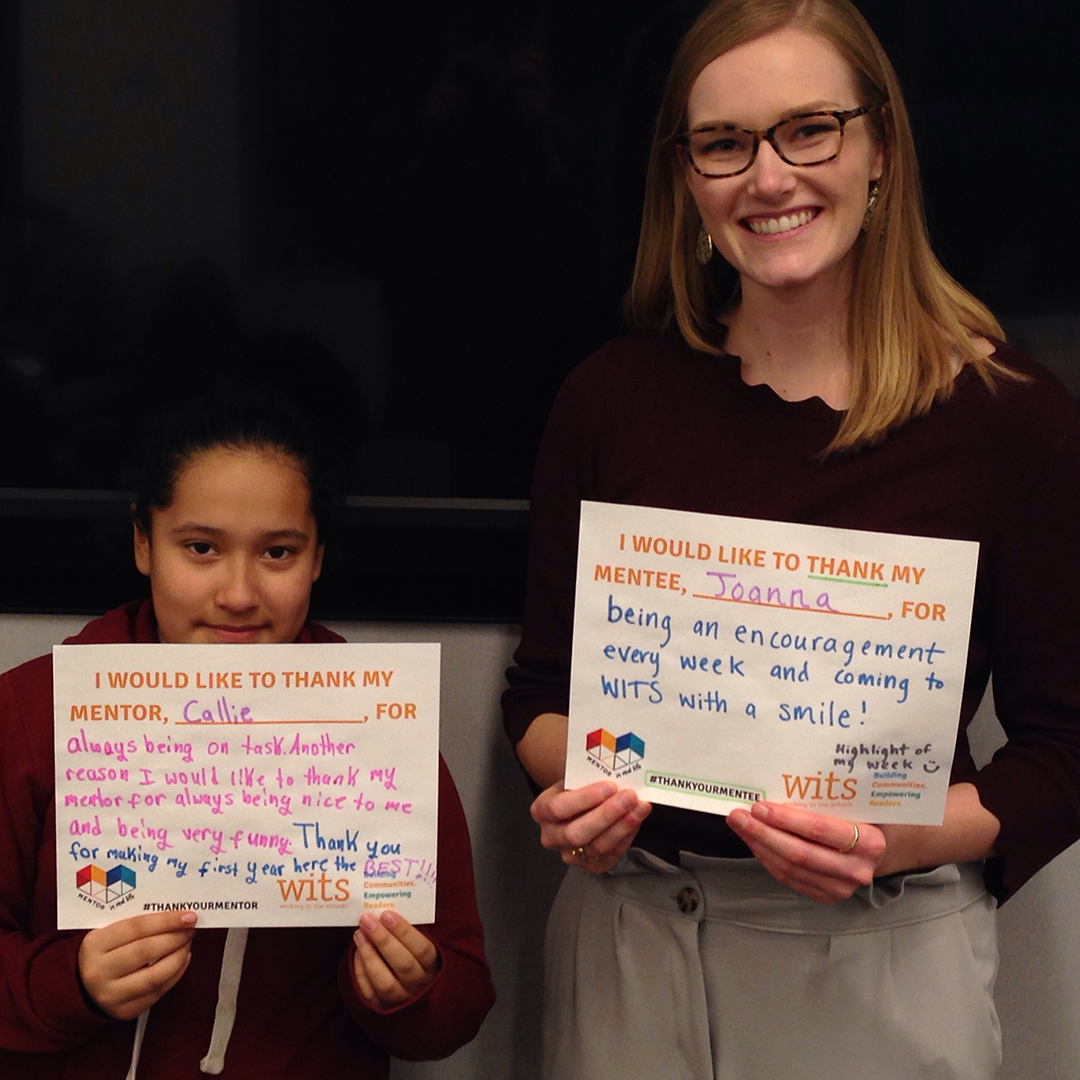 I WOULD LIKE TO THANK MY
MENTOR, Callie, FOR
always being on task. Another
reason I would like to thank my
mentor for always being nice to me
and being very funny. Thank you
for making my first year here the BEST!!!
MENTOR in real life
#THANKYOURMENTOR
wits
working in the schools
Building
Communities.
Empowering
Readers.
I WOULD LIKE TO THANK MY
MENTEE, Joanna, FOR
being an encouragement
every week and coming to
WITS with a smile!
Highlight of
my week
MENTOR in real life
#THANKYOURMENTEE
wits
working in the schools
Building
Communities.
Empowering
Readers.